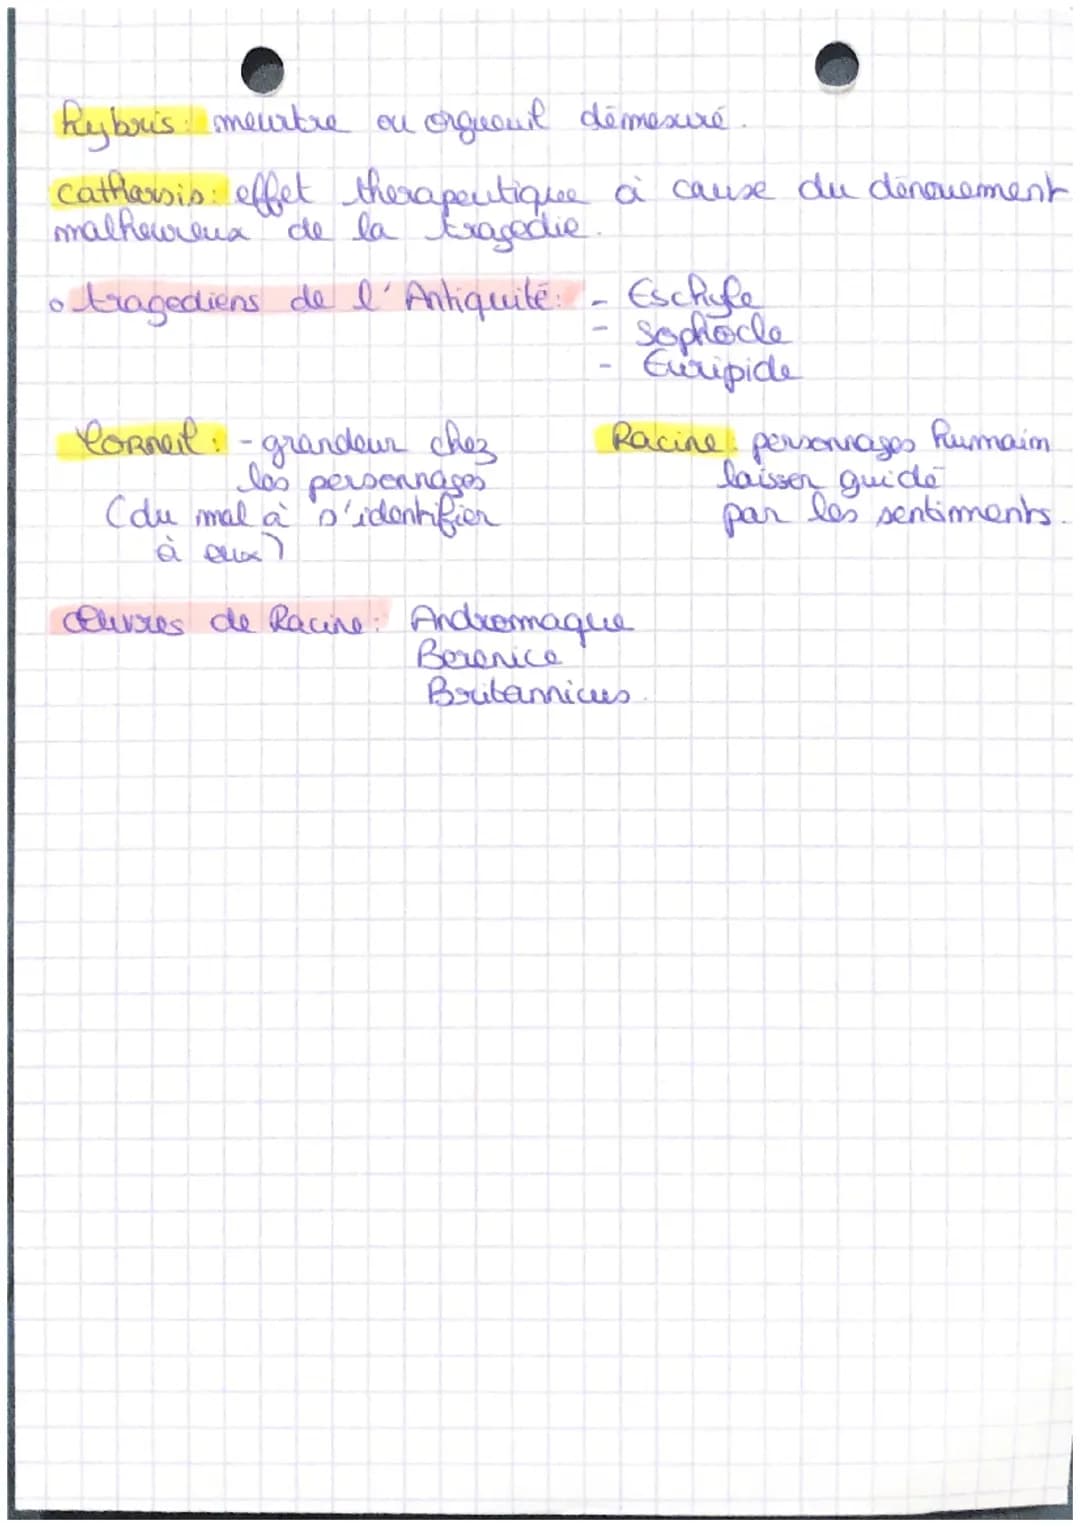 hybris : meurtre ou orgueuil démesuré.
catharsis : effet thérapeutique à cause du dénouement
malheureux de la tragédie.
o tragediens de l'Antiquité : - Eschyle
- Sophocle
- Euripide
Corneil : - grandeur chez
les personnages
(du mal à s'identifier
à eux)
Racine : personnages humaim
laisser guidé
par les sentiments.
Œuvres de Racine : Andromaque
Berenice
Britannicus.